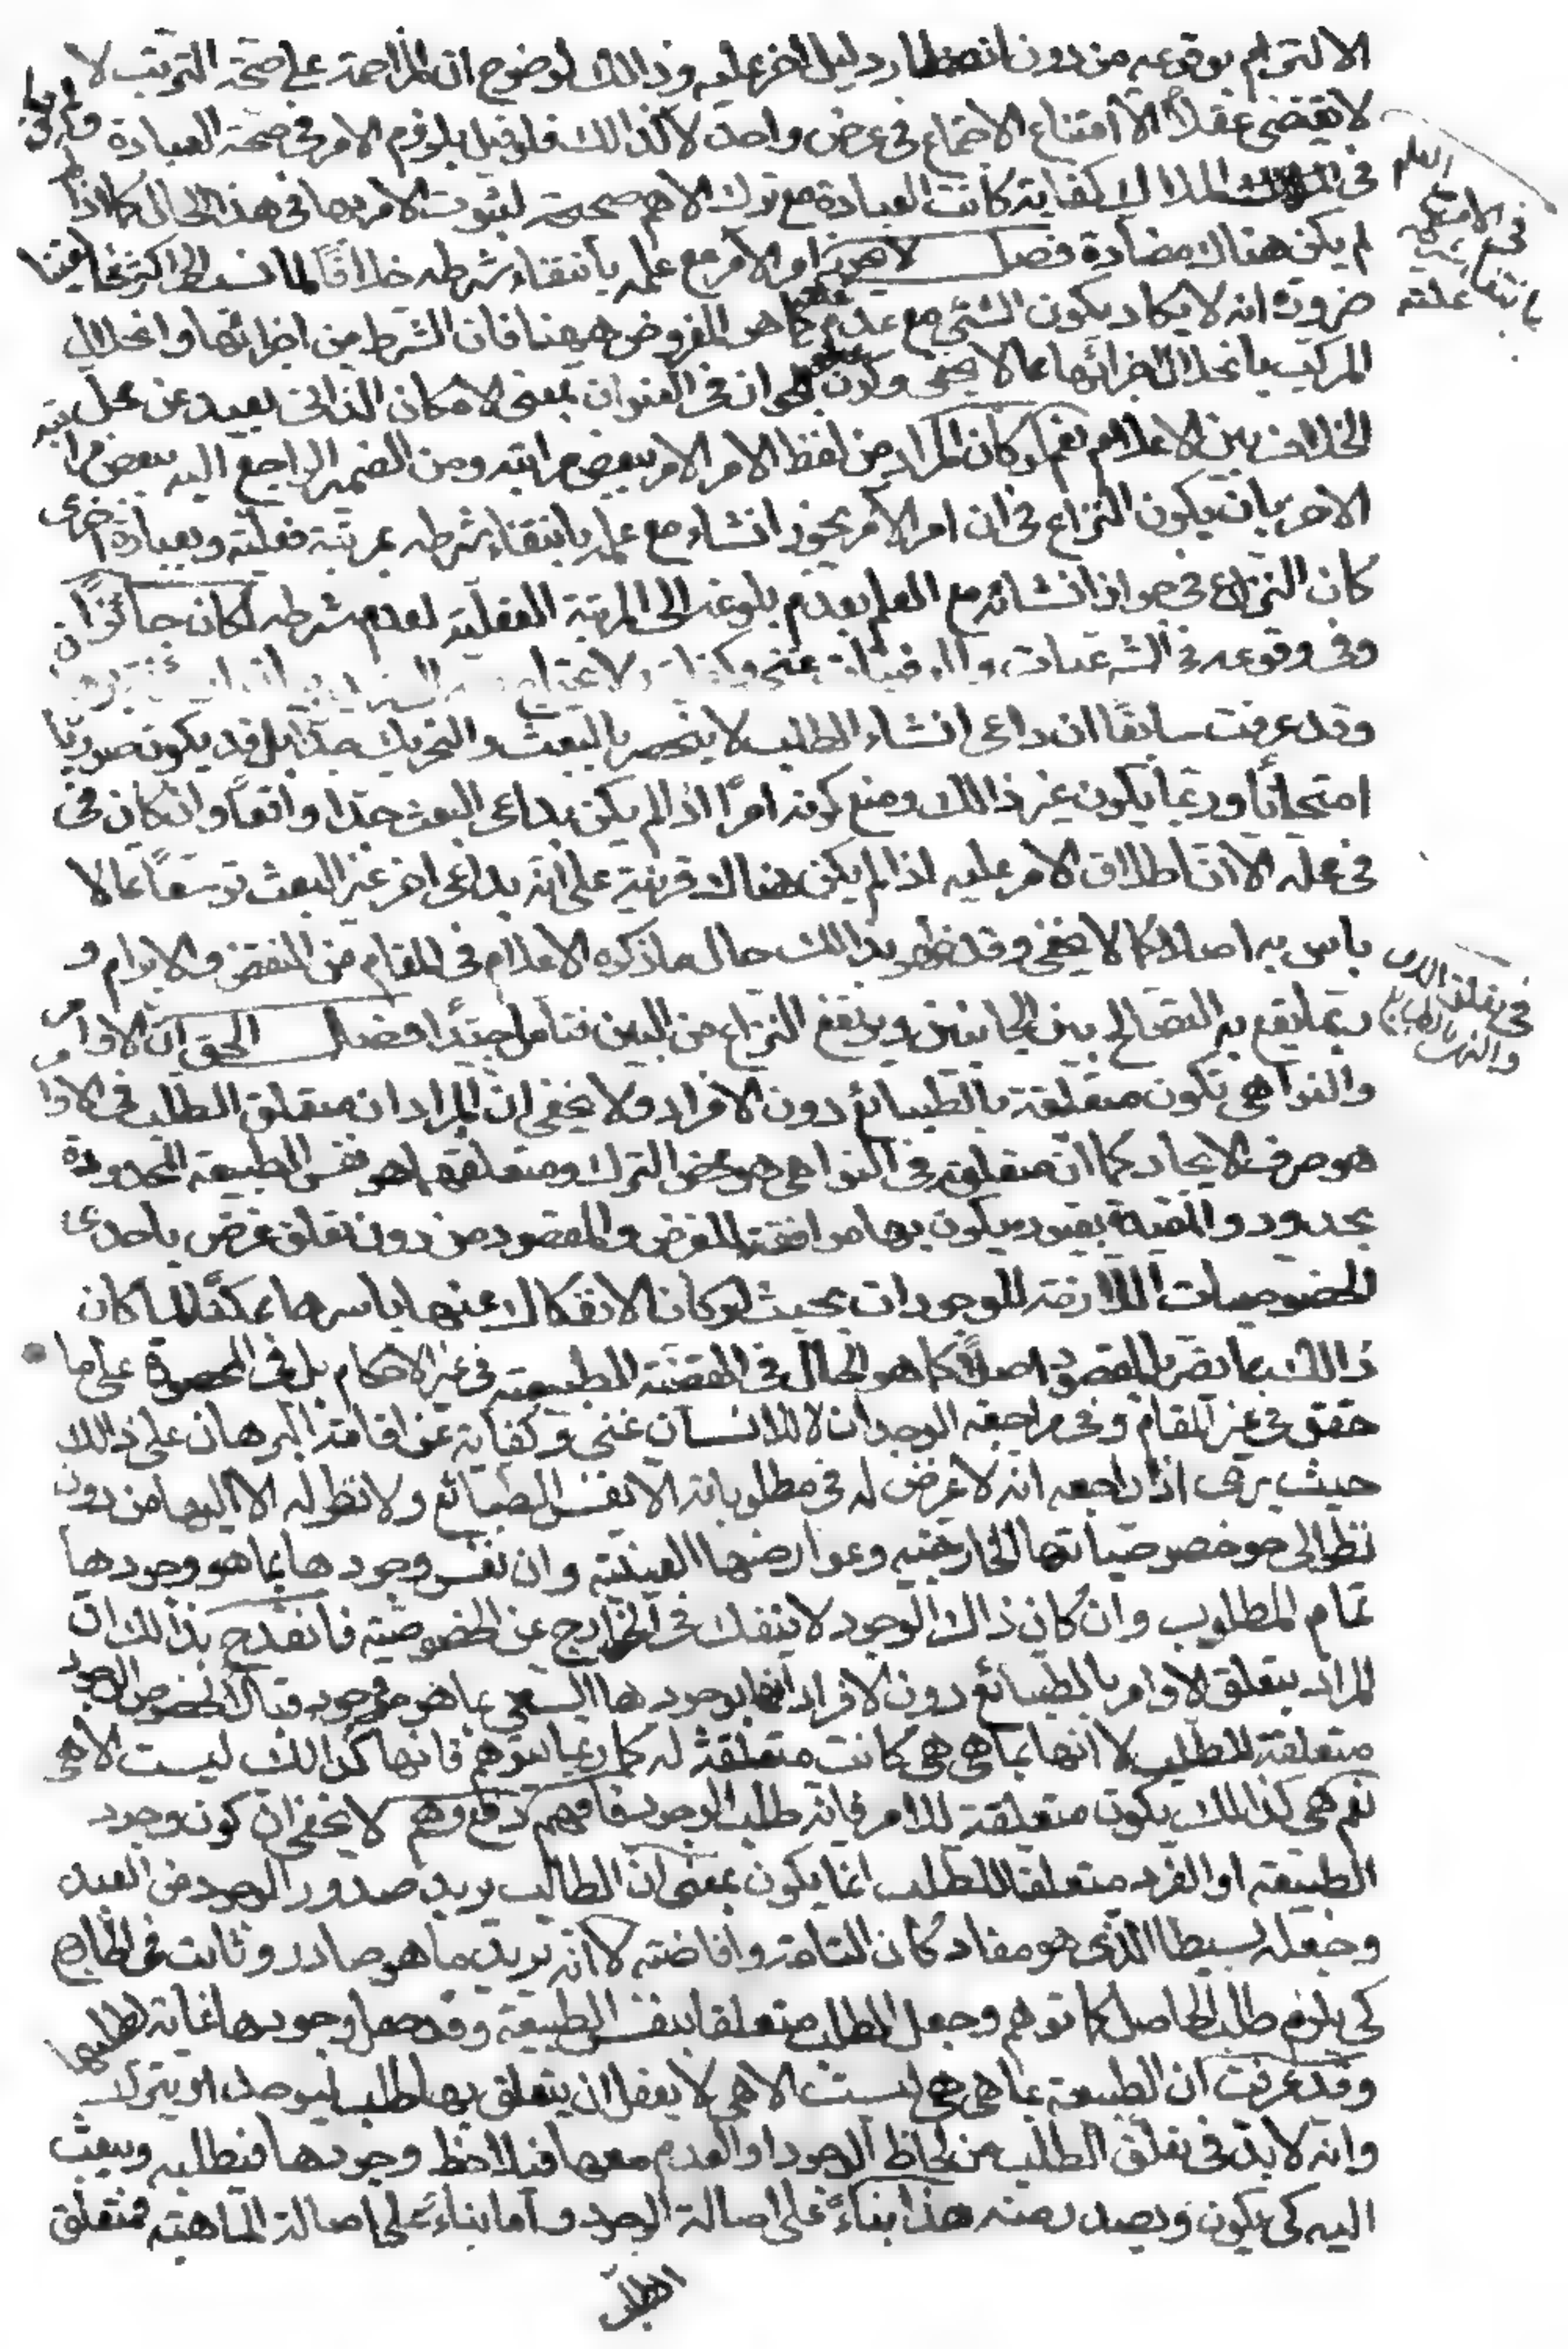 الالتزام بوقوعه من دون انتظار دليل اخر عليه وذالك لوضوح ان المزاحمة على صحة الترتب لا
لا يقتضى عقلاً الا امتناع الاجتماع فى عرض واحد لا كذالك فلو قيل بلزوم الامر فى صحة العبادة ولم يكن
فى الملاك كفاية كانت العبادة مع ترك الاهم صحيحة لثبوت الامر بها فى هذا الحال كما اذا لم
لم يكن هناك مضادة فصل لا يجوز امر الآمر مع علمه بانتفاء شرطه خلافًا لما نسب الى اكثر مخالفينا
ضرورة انه لا يكاد يكون الشئى مع عدم علته كما هو المفروض ههنا فان الشرط من اجزائها وانحلال
المركب بانحلال اجزائها مما لا يخفى وكون الجواز فى العنوان بمعنى الامكان الذاتى بعيد عن محل
الخلاف بين الاعلام نعم لو كان المراد من لفظ الامر الامر ببعض مراتبه ومن الضمير الراجع اليه بعض مراتبه
الاخر بان يكون النزاع فى ان امر الآمر يجوز انشاء مع علمه بانتفاء شرطه بمرتبة فعليته وبعبارة اخرى
كان النزاع فى جواز انشائه مع العلم بعدم بلوغه الى المرتبة الفعلية لعدم شرطه لكان جائزًا
وفى وقوعه فى الشرعيات والعرفيات غنى وكفاية ولا يحتاج
وقد عرفت سابقًا ان داعى انشاء الطلب لا ينحصر بالبعث والتحريك جدًا بل قد يكون صوريًا
امتحانًا وربما يكون غير ذالك ومنع كونه امرًا اذا لم يكن بداعى البعث جدا واقعًا وان كان فى
فى محله الا ان اطلاق الامر عليه اذا لم يكن هناك قرينة على انه بداعى اخر غير البعث توسعًا مما لا
باس به اصلا كما لا يخفى وقد ظهر بذالك حال ما ذكره الاعلام فى المقام من النقض والابرام و
ربما يقع به التصالح بين الجانبين ويرتفع النزاع من البين فتامل جيّدًا فصل الحق ان الاوامر
والنواهى تكون متعلقة بالطبائع دون الافراد ولا يخفى ان المراد ان متعلق الطلب فى الاوامر
هو صرف الايجاد كما ان متعلقه فى النواهى هو محض الترك ومتعلقهما هو نفس الطبيعة المحدودة
بحدود والمقيدة بقيود يكون بها موافقة للغرض والمقصود من دون تعلق غرض باحدى
الخصوصيات اللازمة للوجودات بحيث لو كان الانفكاك عنها باسرها ممكنًا لما كان
ذالك مما يضر بالمقصود اصلًا كما هو الحال فى القضية الطبيعية فى غير الاحكام بل فى المحصورة على ما
حقق فى غير المقام وفى مراجعة الوجدان للانسان غنى وكفاية عن اقامة البرهان على ذالك
حيث يرى اذا راجعه انه لا غرض له فى مطلوباته الا نفس الطبائع ولا نظر له الا اليها من دون
نظر الى خصوصياتها الخارجيه وعوارضها العينية وان نفس وجودها بما هو وجودها
تمام المطلوب وان كان ذاك الوجود لا ينفك فى الخارج عن الخصوصية فانقدح بذالك ان
المراد بتعلق الاوامر بالطبائع دون الافراد انها بوجودها السعى بما هو وجود قبالا لخصوص الوجود
متعلقة للطلب لا انها بما هى هى كانت متعلقة له كما ربما يتوهم فانها كذالك ليست الا هى
نعم هى كذالك يكون متعلقة للامر فانه طلب الوجود فافهم دفع وهم لا يخفى ان كون وجود
الطبيعة او الفرد متعلقا للطلب انما يكون بمعنى ان الطالب يريد صدور الوجود من العبد
وجعله بسيطا الذى هو مفاد كان التامة وافاضته لا انه يريد ما هو صادر وثابت فى الخارج
كى يلزم طلب الحاصل كما توهم وجعل الطلب متعلقا بنفس الطبيعة وقد جعل وجودها غاية لطلبها
وقد عرفت ان الطبيعة بما هى هى ليست الا هى لا يعقل ان يتعلق بها طلب ليوجد او يترك
وانه لا بد فى تعلق الطلب من لحاظ الوجود او العدم معها فيلاحظ وجودها فيطلبه ويبعث
اليه كى يكون ويصدر منه هذا بناءً على اصالة الوجود واما بناءً على اصالة الماهية فمتعلق
الطلب